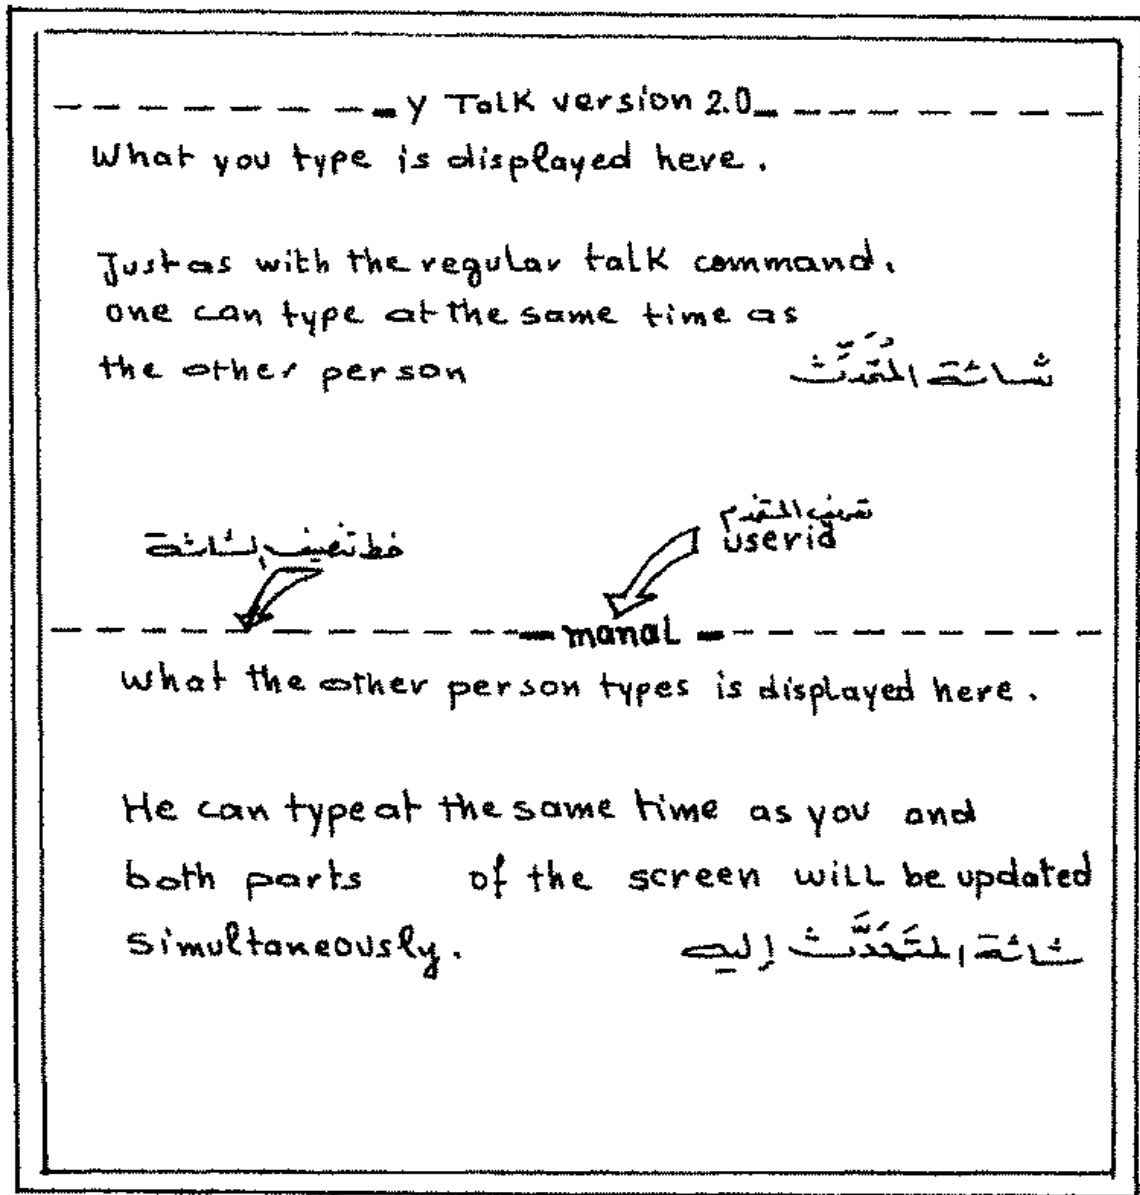 ---------- y Talk version 2.0 ----------
What you type is displayed here.
Just as with the regular talk command.
one can type at the same time as
the other person
شاشة المُتَحَدِّث
تعريف المستخدم
userid
خط تنصيف الشاشة
---------- manal ----------
What the other person types is displayed here.
He can type at the same time as you and
both parts of the screen will be updated
simultaneously.
شاشة المتَحَدَّث إليه